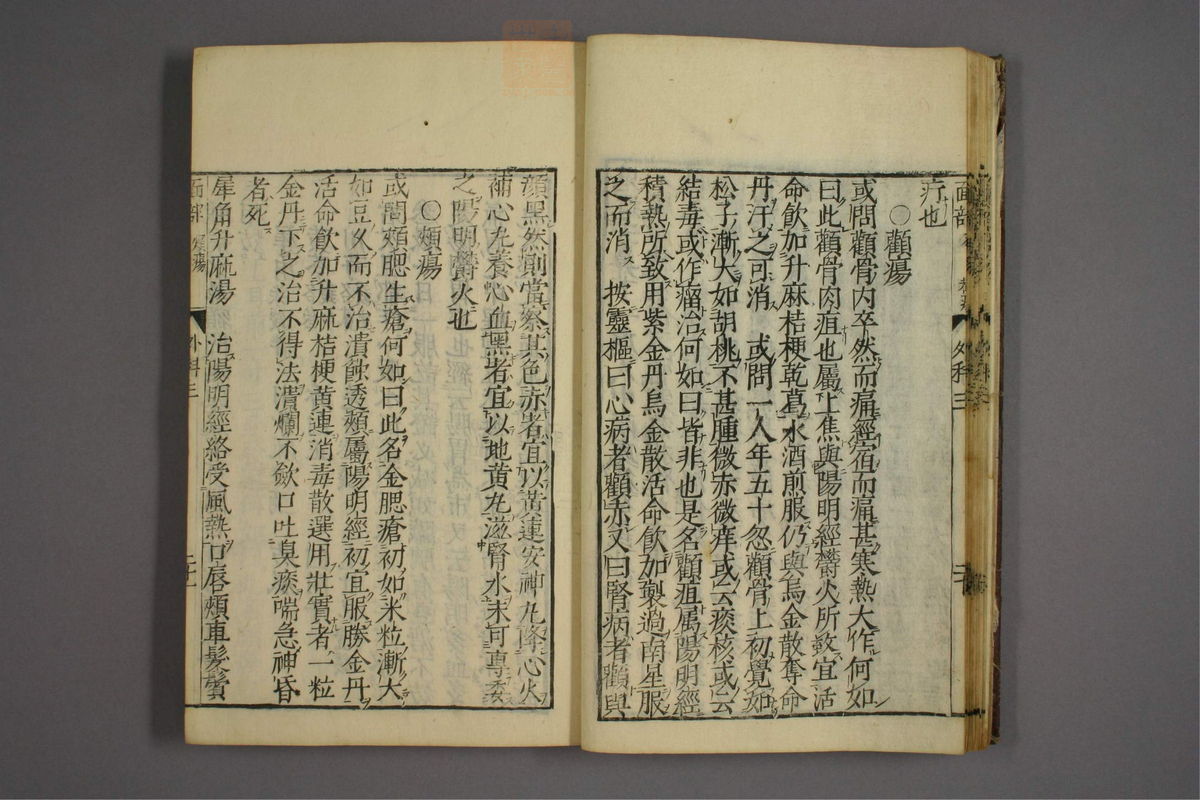 面部
外科三
疔也
○顴瘍
或問顴骨内卒然而痛經宿而痛甚寒熱大作何如
曰此顴骨肉疽也屬上焦與陽明經鬱火所致宜活
命飲加升麻桔梗乾葛水酒煎服仍與烏金散奪命
丹汗之可消　或問一人年五十忽顴骨上初覺如
松子漸大如胡桃不甚腫微赤微痒或云痰核或云
結毒或作瘤治何如曰皆非也是名顴疽属陽明經
積熱所致用紫金丹烏金散活命飲加製過南星服
之而消　按靈樞曰心病者顴赤又曰腎病者顴與
顏黑然則當察其色赤者宜以黄連安神丸降心火
補心丸養心血黑者宜以地黄丸滋腎水未可専委
之陽明鬱火也
○頰瘍
或問頰腮生瘡何如曰此名金腮瘡初如米粒漸大
如豆久而不治潰飲透頰屬陽明經初宜服勝金丹
活命飲加升麻桔梗黄連消毒散選用壯實者一粒
金丹下之治不得法潰爛不歛口吐臭痰喘急神昏
者死
犀角升麻湯　治陽明經絡受風熱口唇頰車髮鬢
外科三